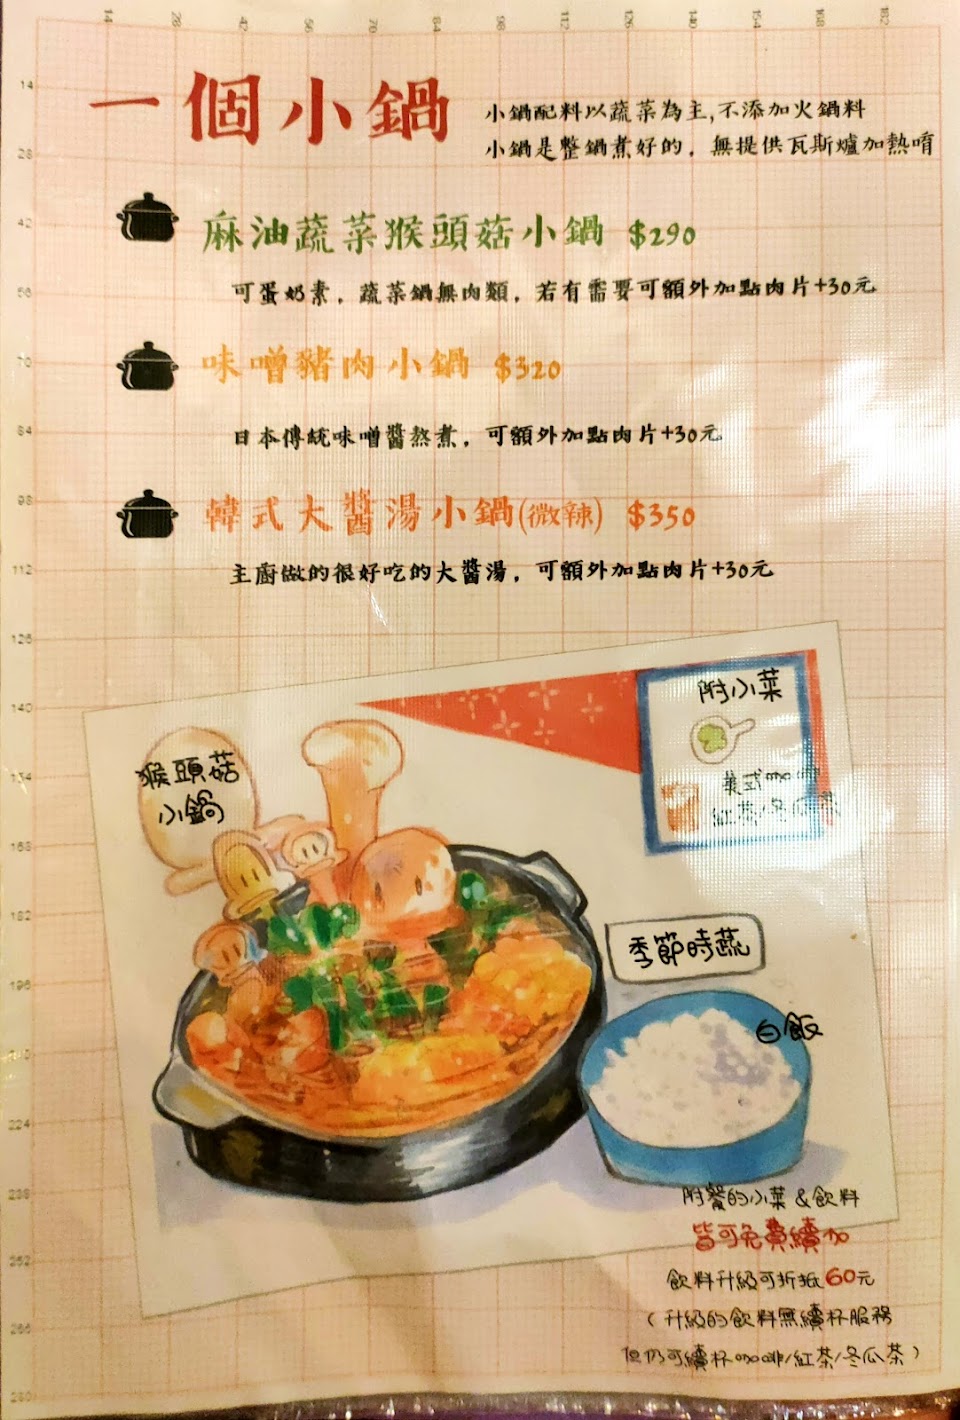 14 28 42 56 70 84 98 112 126 140 154 168 182
一個小鍋
小鍋配料以蔬菜為主,不添加火鍋料
小鍋是整鍋煮好的，無提供瓦斯爐加熱唷
麻油蔬菜猴頭菇小鍋 $290
可蛋奶素，蔬菜鍋無肉類，若有需要可額外加點肉片+30元
味噌豬肉小鍋 $320
日本傳統味噌醬熬煮，可額外加點肉片+30元
韓式大醬湯小鍋(微辣) $350
主廚做的很好吃的大醬湯，可額外加點肉片+30元
附小菜
猴頭菇
小鍋
美式
紅茶/冬瓜茶
季節時蔬
白飯
附餐的小菜&飲料
皆可免費續加
飲料升級可折抵60元
(升級的飲料無續杯服務
但仍可續杯咖啡/紅茶/冬瓜茶)